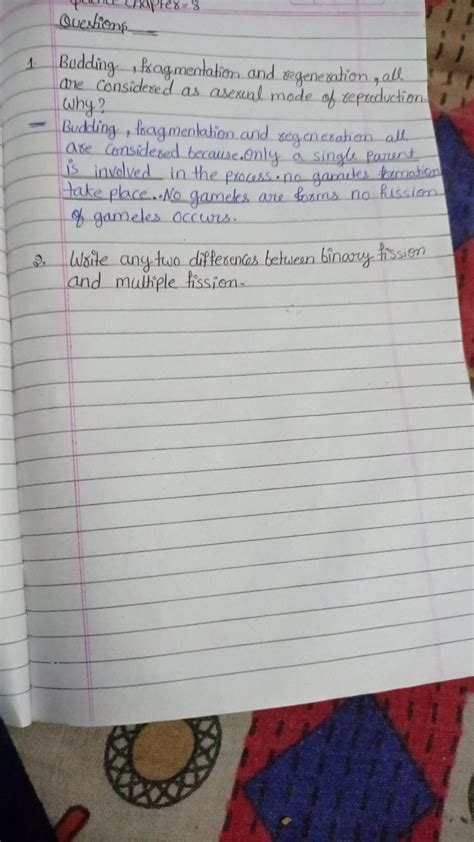 Chapter-8
Questions
1. Budding, fragmentation and regeneration, all
are considered as asexual mode of reproduction.
Why?
- Budding, fragmentation and regeneration all
are considered because. Only a single parent
is involved in the process. no gametes formation
take place.. No gametes are forms no fussion
of gametes occurs.
2. Write any two differences between binary fission
and multiple fission.